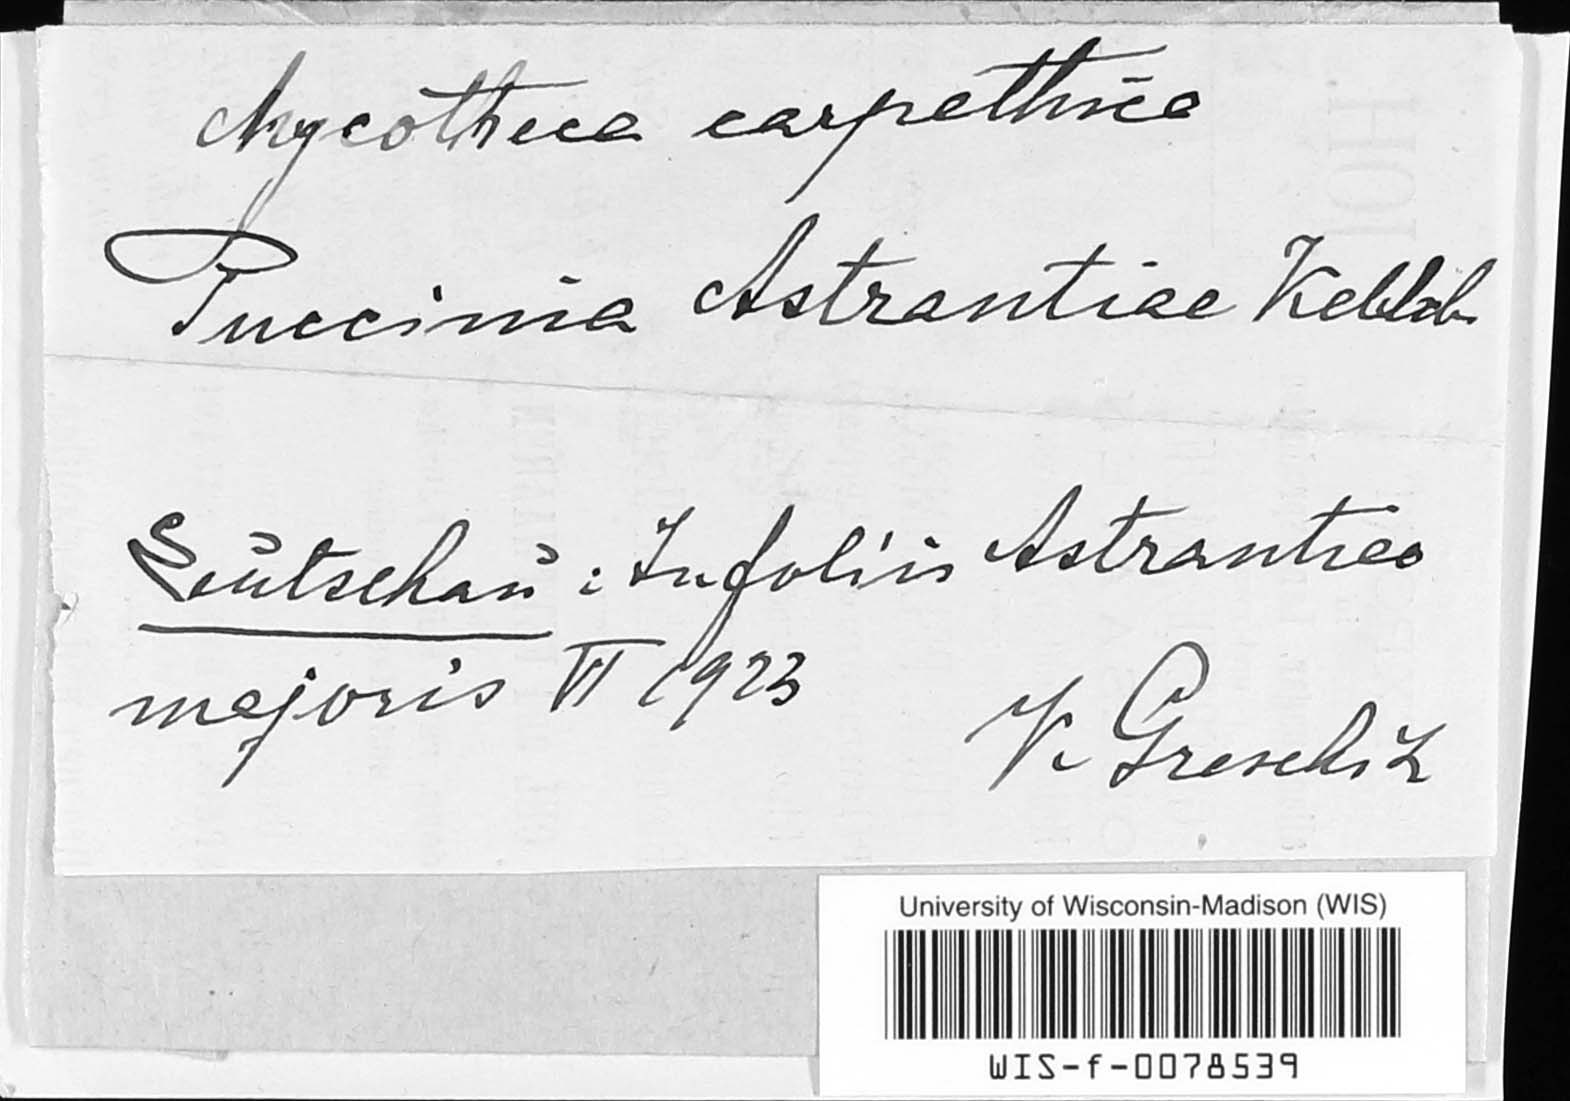 Mycotheca carpathica
Puccinia Astrantiae Kalchb.
Leutschau : In foliis Astrantiae
majoris VI 1923
V. Greschik
University of Wisconsin-Madison (WIS)
WIS-f-0078539